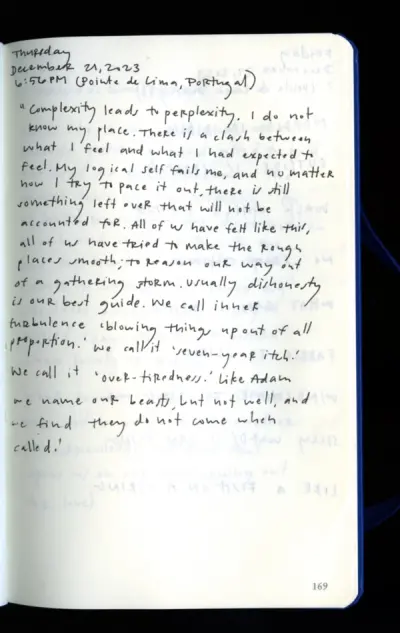 Thursday
December 21, 2023
6:56 PM (Pointe de Lima, Portugal)
"Complexity leads to perplexity. I do not
know my place. There is a clash between
what I feel and what I had expected to
feel. My logical self fails me, and no matter
how I try to pace it out, there is still
something left over that will not be
accounted for. All of us have felt like this,
all of us have tried to make the rough
places smooth; to reason our way out
of a gathering storm. Usually dishonesty
is our best guide. We call inner
turbulence 'blowing things up out of all
proportion.' We call it 'seven-year itch.'
We call it 'over-tiredness.' Like Adam
we name our beasts, but not well, and
we find they do not come when
called.'
169